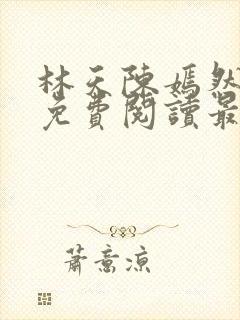 林天陳嫣然
免費閱讀最
蕭意涼